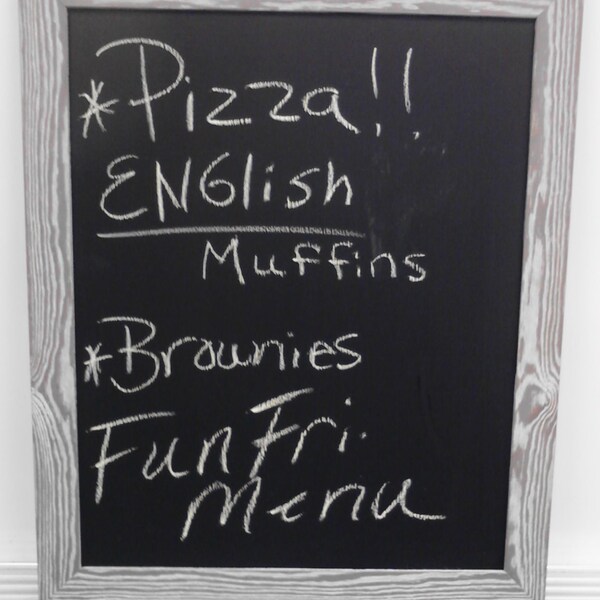 *Pizza!!
ENGlish
Muffins
*Brownies
Fun Fri.
Menu